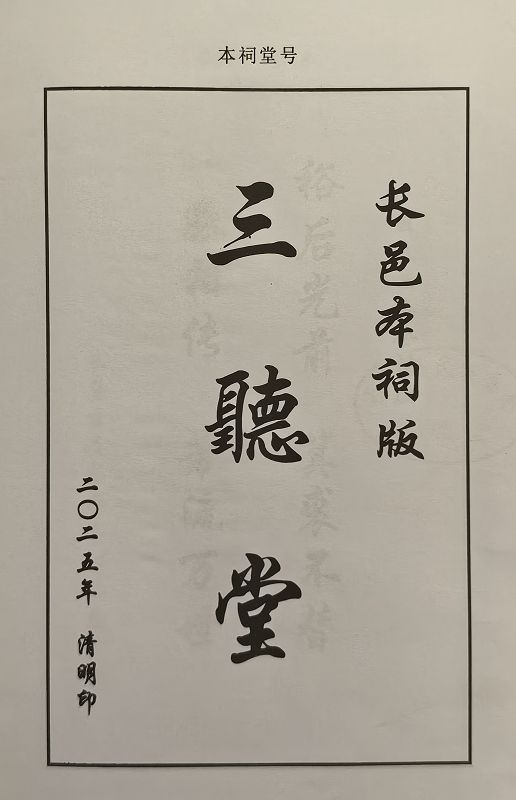 本祠堂号
长邑本祠版
三聽堂
二〇二五年 清明印